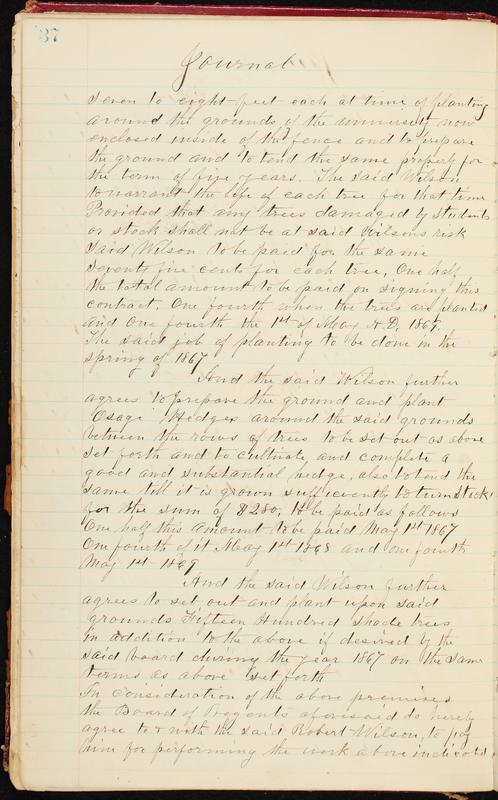 37
Journal
seven to eight feet each at time of planting
around the grounds of the university now
enclosed inside of the fence and to prepare
the ground and to tend the same properly for
the term of five years. The said Wilson
to warrant the life of each tree for that time
Provided that any trees damaged by students
or stock shall not be at said Wilsons risk
Said Wilson to be paid for the same
Seventy five cents for each tree, One half
the total amount to be paid on signing this
contract, One fourth when the trees are planted
and One fourth the 1st of May A.D.
The said job of planting to be done in the
spring of 1867
And the said Wilson further
agrees to prepare the ground and plant
Osage Hedges around the said grounds
between the rows of trees to be set out as above
set forth and to cultivate and complete a
good and substantial hedge, also to tend the
same till it is grown sufficiently to turn stock
for the sum of $280, to be paid as follows
One half this amount to be paid May 1st 1867
One fourth of it May 1st 1868 and one fourth
May 1st 1869
And the said Wilson further
agrees to set out and plant upon said
grounds Fifteen Hundred shade trees
in addition to the above if desired by the
said board during the year 1867 on the same
terms as above set forth
In consideration of the above premises
the Board of Regents aforesaid do hereby
agree to & with the said Robert Wilson, to pay
him for performing the work above indicated